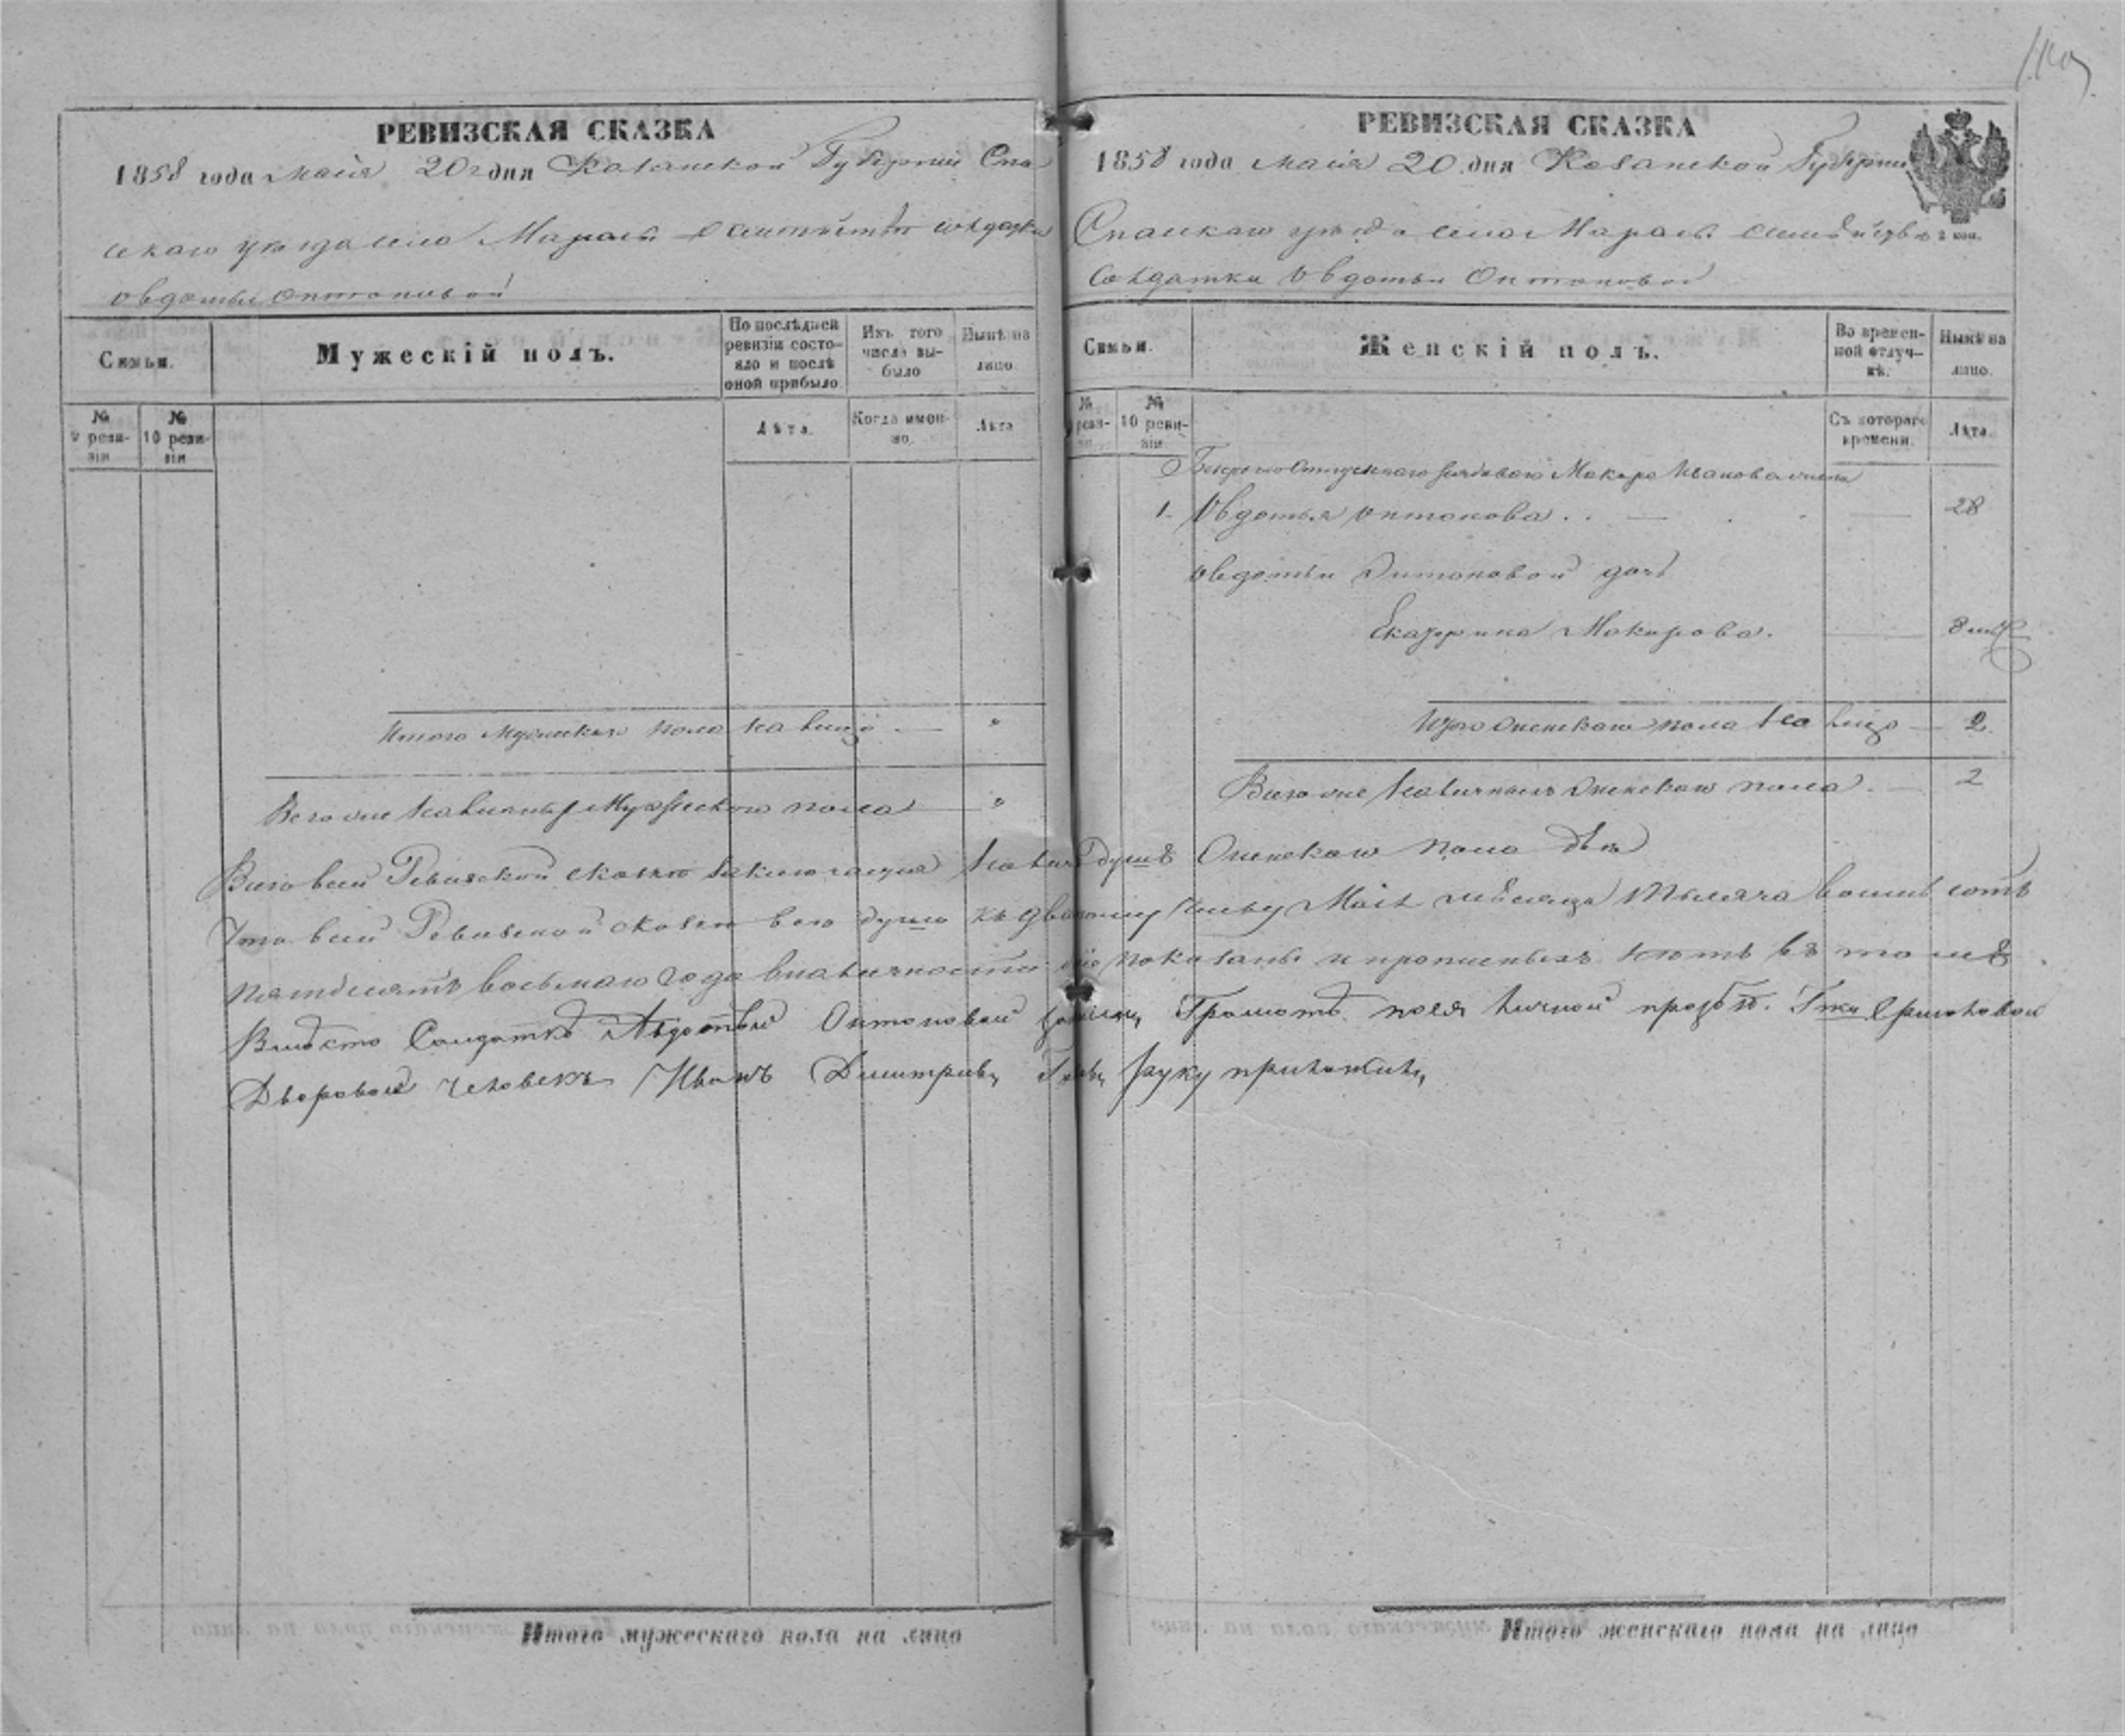 РЕВИЗСКАЯ СКАЗКА
1858 года маія 20 дня Казанской Губерніи Спа
скаго уѣзда села Мараси семѣйства солдатки
овдотьи онтоновой
Семьи.
Мужескій полъ.
По послѣдней ревизіи состояло и послѣ оной прибыло.
Изъ того числа выбыло
Нынѣ на лицо.
№ 9 ревизіи
№ 10 ревизіи
Лѣта.
Когда именно.
Лѣта
Итого Мужеска пола на лицо —
Всего же наличныхъ Мужескаго пола —
РЕВИЗСКАЯ СКАЗКА
1858 года маія 20 дня Казанской Губерніи
Спаскаго уѣзда села Мараси семѣйства
Солдатки овдотьи онтоновой
2 коп.
Семьи.
Женскій полъ.
Во временной отлучкѣ.
Нынѣ на лицо.
№ реви-
№ 10 ревизіи
Съ котораго времени.
Лѣта.
Безсрочно Отпускнаго рядоваго Макара Иванова жена
1. Овдотья онтонова . . — 28
овдотьи Онтоновой дочь
Екатерина Макарова. — 8
Итого женскаго пола на лицо — 2
Всего же наличныхъ женскаго пола — 2
Всего в сей Ревизской сказке заключается на лицо душъ женскаго пола двѣ
Что в сей Ревизской сказке все души къ Маія месяца тысяча восемь сотъ
пятдесятъ восьмаго года в наличности показаны и прописныхъ нетъ въ томъ
Вместо Солдатки Авдотьи Онтоновой Грамоте по ея личной прозбѣ.
Дворовой человекъ Иванъ Дмитриевъ руку приложилъ
Итого мужескаго пола на лицо
Итого женскаго пола на лицо